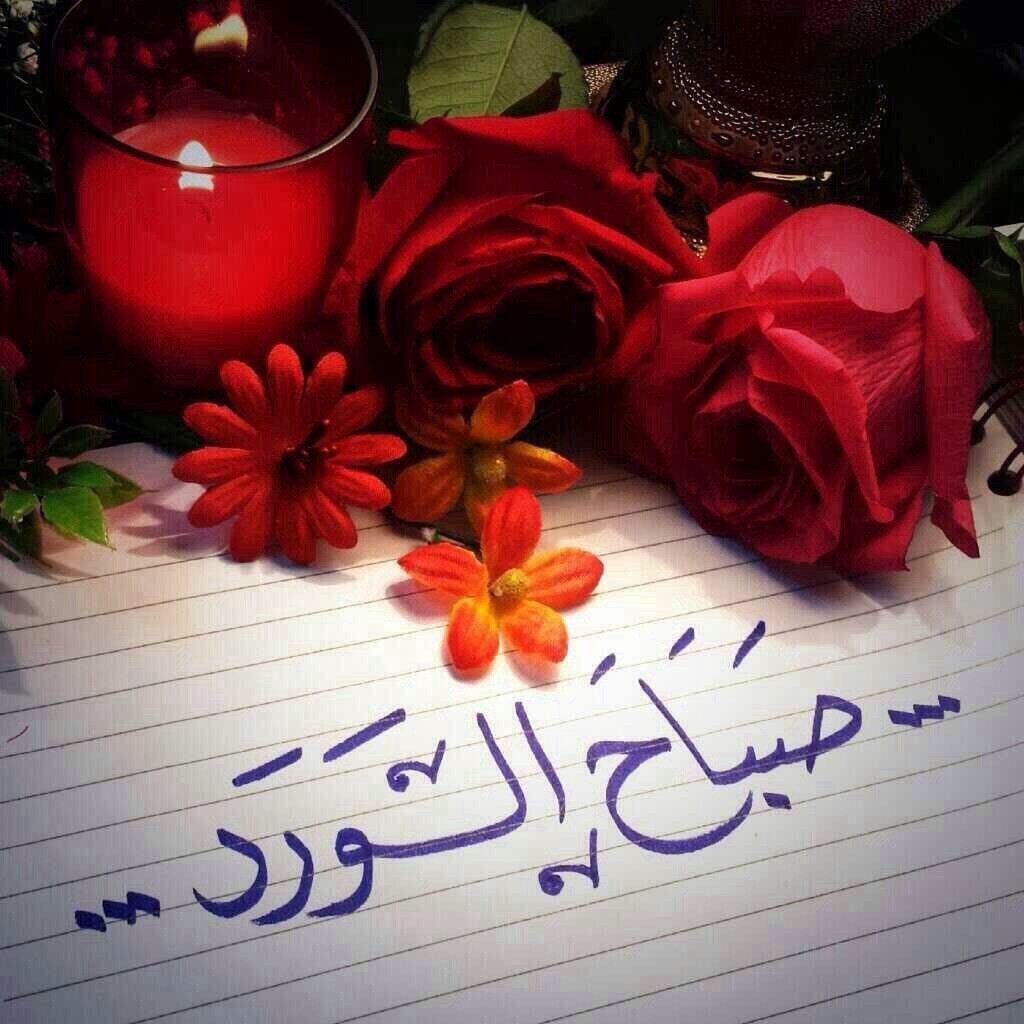 ... صَبَاحَ الوَرَد ...